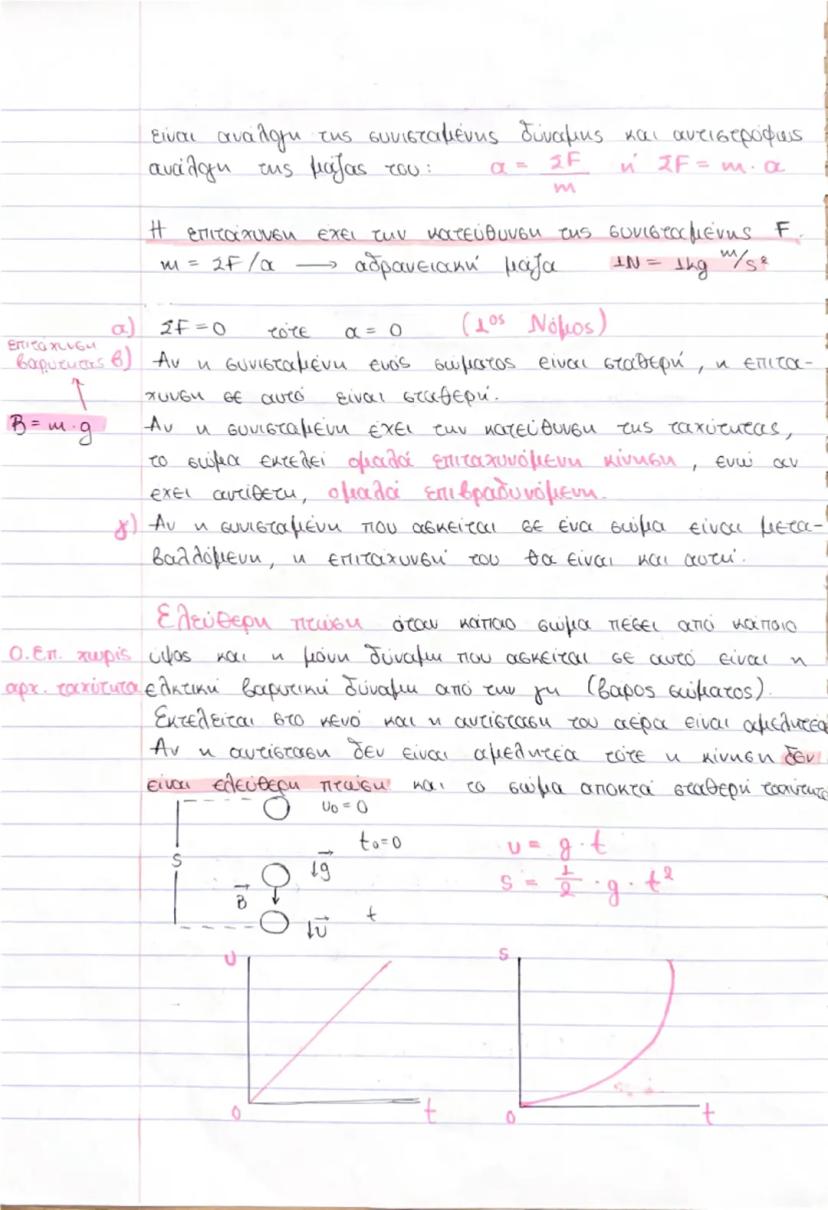 είναι ανάλογη της συνισταμένης δύναμης και αντιστρόφως
ανάλογη της μάζας του: α = ΣF/m ή ΣF = m · α
Η επιτάχυνση έχει την κατεύθυνση της συνισταμένης F.
m = ΣF/α → αδρανειακή μάζα 1N = 1kg m/s²
α) ΣF = 0 τότε α = 0 (1ος Νόμος)
επιτάχυνση
βαρύτητας
β) Αν η συνισταμένη ενός σώματος είναι σταθερή, η επιτα-
χυνση σε αυτό είναι σταθερή.
B = m · g
Αν η συνισταμένη έχει την κατεύθυνση της ταχύτητας,
το σώμα εκτελεί ομαλά επιταχυνόμενη κίνηση, ενώ αν
έχει αντίθετη, ομαλά επιβραδυνόμενη.
γ) Αν η συνισταμένη που ασκείται σε ένα σώμα είναι μετα-
βαλλόμενη, η επιτάχυνσή του θα είναι και αυτή.
Ελεύθερη πτώση όταν κάποιο σώμα πέσει από κάποιο
Ο.Επ. χωρίς
αρχ. ταχύτητα
ύψος και η μόνη δύναμη που ασκείται σε αυτό είναι η
ελκτική βαρυτική δύναμη από την γη (βάρος σώματος).
Εκτελείται στο κενό και η αντίσταση του αέρα είναι αμελητέα
Αν η αντίσταση δεν είναι αμελητέα τότε η κίνηση δεν
είναι ελεύθερη πτώση και το σώμα αποκτά σταθερή ταχύτητα
υ₀ = 0
t₀ = 0
S
↓g⃗
B⃗
↓υ⃗ t
υ = g · t
S = 1/2 · g · t²
υ
0 t
S
0 t